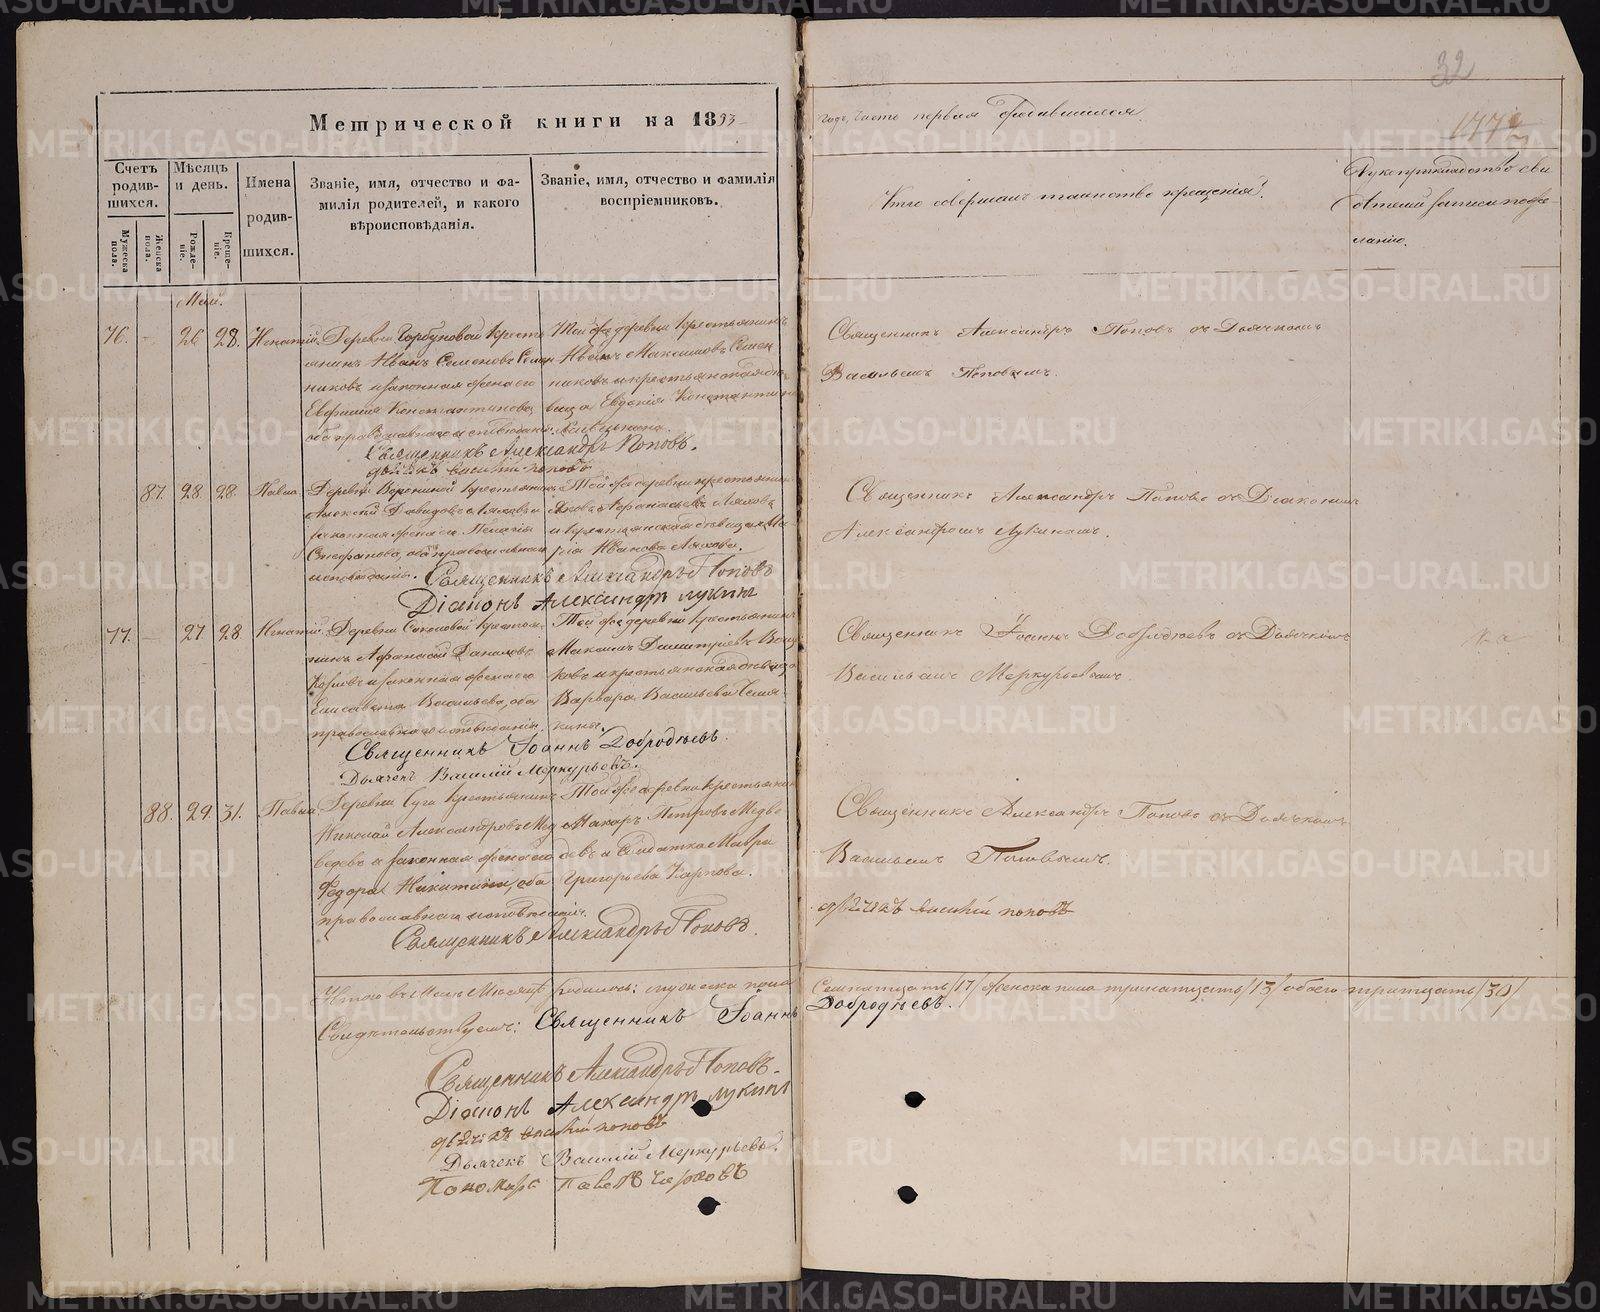 32
Метрической книги на 1853
годъ, часть первая о родившихся.
177
Счетъ родив-шихся.
Мужеска пола.
Женска пола.
Мѣсяцъ и день.
Рожде-ніе.
Креще-ніе.
Имена родив-шихся.
Званіе, имя, отчество и фа-
милія родителей, и какого
вѣроисповѣданія.
Званіе, имя, отчество и фамилія
воспріемниковъ.
Кто совершалъ таинство крещенія.
Рукоприкладство сви
дѣтелей записи по же-
ланію.
Май.
76. - 26 28. Игнатій.
Деревни Горбуновой крестья
янинъ Иванъ Семеновъ Семен
никовъ и законная жена его
Евфимия Константинова
оба православнаго исповеданія.
Той же деревни крестьянинъ
Иванъ Максимовъ Семен
никовъ и крестьянская дѣ
вица Евдокія Константин
Священникъ Александръ Поповъ.
дьячекъ василій поповъ
Священникъ Александръ Поповъ съ Дьячкомъ
Васильемъ Поповымъ.
87. 28 28.
Деревни крестьянинъ
Алексѣй Давидовъ
законная жена его Пелагія
Стефанова, оба православнаго
исповѣданія.
Той же деревни крестьянин
Яковъ Афанасьевъ Ляховъ
и крестьянская дѣвица Ма
рія Иванова Ляхова.
Священникъ Александръ Поповъ
Діаконъ Александръ Лукинъ
Священникъ Александръ Поповъ съ Діакономъ
Александромъ Лукинымъ.
77. - 27 28. Игнатій.
Деревни Соколовой крестья-
нинъ Афанасій Даниловъ
и законная жена его
Елисавета Васильева, оба
православнаго исповеданія.
Той же деревни крестьянинъ
Максимъ Димитріевъ
ковъ и крестьянская дѣвица
Варвара Васильева
кина.
Священникъ Іоаннъ Добродѣевъ.
Дьячекъ Василій Меркурьевъ.
Священникъ Іоаннъ Добродѣевъ съ Дьячкомъ
Васильемъ Меркурьевымъ.
88. 29. 31.
Деревни крестьянинъ
Николай Александровъ Мед
ведевъ и законная жена его
Федора Никитина, оба
православнаго исповѣданія.
Той же деревни крестьянин
Макаръ Петровъ Медве
девъ и Солдатка Мавра
Григорьева Карпова.
Священникъ Александръ Поповъ.
Священникъ Александръ Поповъ съ Дьячкомъ
Васильемъ Поповымъ.
дьячекъ василій поповъ
Итого въ Маѣ Мѣсяцѣ родилось: мужеска пола
Семнатцать /17/ женска пола тринатцать /13/ обоего тритцать /30/
Свидѣтельствуемъ: Священникъ Іоаннъ
Добродѣевъ.
Священникъ Александръ Поповъ.
Діаконъ Александръ Лукинъ
дьячекъ василій поповъ
Дьячекъ Василій Меркурьевъ.
Пономарь Павелъ
METRIKI.GASO-URAL.RU